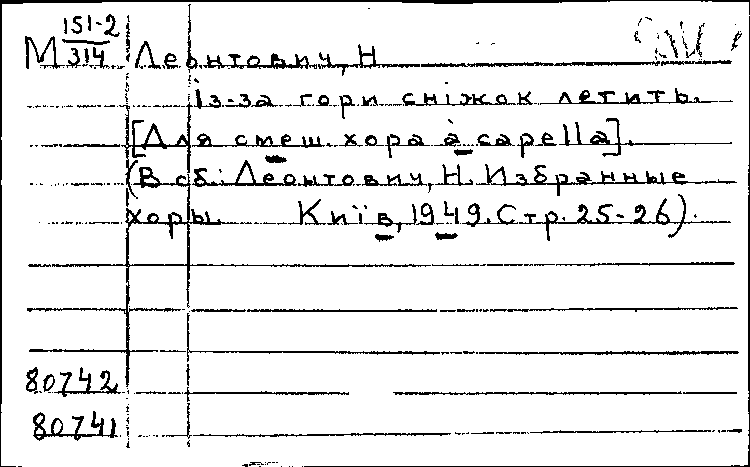 М 151-2/314 Леонтович, Н
Із-за гори сніжок летить.
[Для смеш. хора à capella].
(В сб.: Леонтович, Н. Избранные
хоры. Київ, 1949. Стр. 25-26).
80742
80741